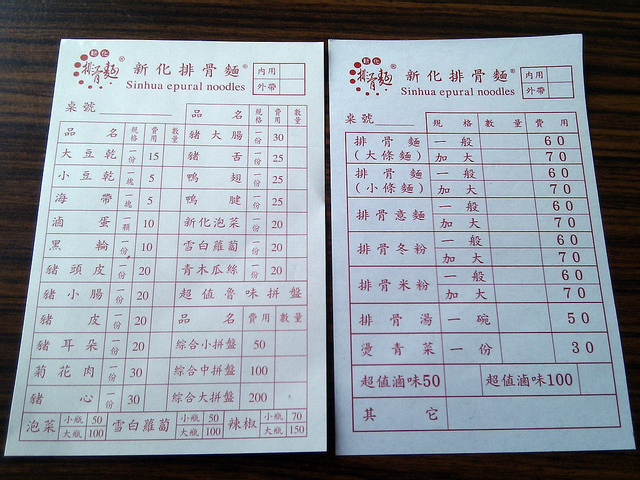 新化
排骨麵®
新化排骨麵®
Sinhua epural noodles
內用
外帶
桌號
品名 規格 費用 數量
大豆乾 一份 15
小豆乾 一塊 5
海帶 一塊 5
滷蛋 一顆 10
黑輪 一份 10
豬頭皮 一份 20
豬小腸 一份 20
豬皮 一份 20
豬耳朵 一份 20
菊花肉 一份 30
豬心 一份 30
品名 規格 費用 數量
豬大腸 一份 30
豬舌 一份 25
鴨翅 一份 25
鴨腱 一份 25
新化泡菜 一份 20
雪白蘿蔔 一份 20
青木瓜絲 一份 20
超值魯味拼盤
品名 費用 數量
綜合小拼盤 50
綜合中拼盤 100
綜合大拼盤 200
泡菜 小瓶 50 大瓶 100 雪白蘿蔔 小瓶 50 大瓶 100 辣椒 小瓶 70 大瓶 150
新化
排骨麵®
新化排骨麵®
Sinhua epural noodles
內用
外帶
桌號
規格 數量 費用
排骨麵(大條麵) 一般 60
加大 70
排骨麵(小條麵) 一般 60
加大 70
排骨意麵 一般 60
加大 70
排骨冬粉 一般 60
加大 70
排骨米粉 一般 60
加大 70
排骨湯 一碗 50
燙青菜 一份 30
超值滷味50 超值滷味100
其它